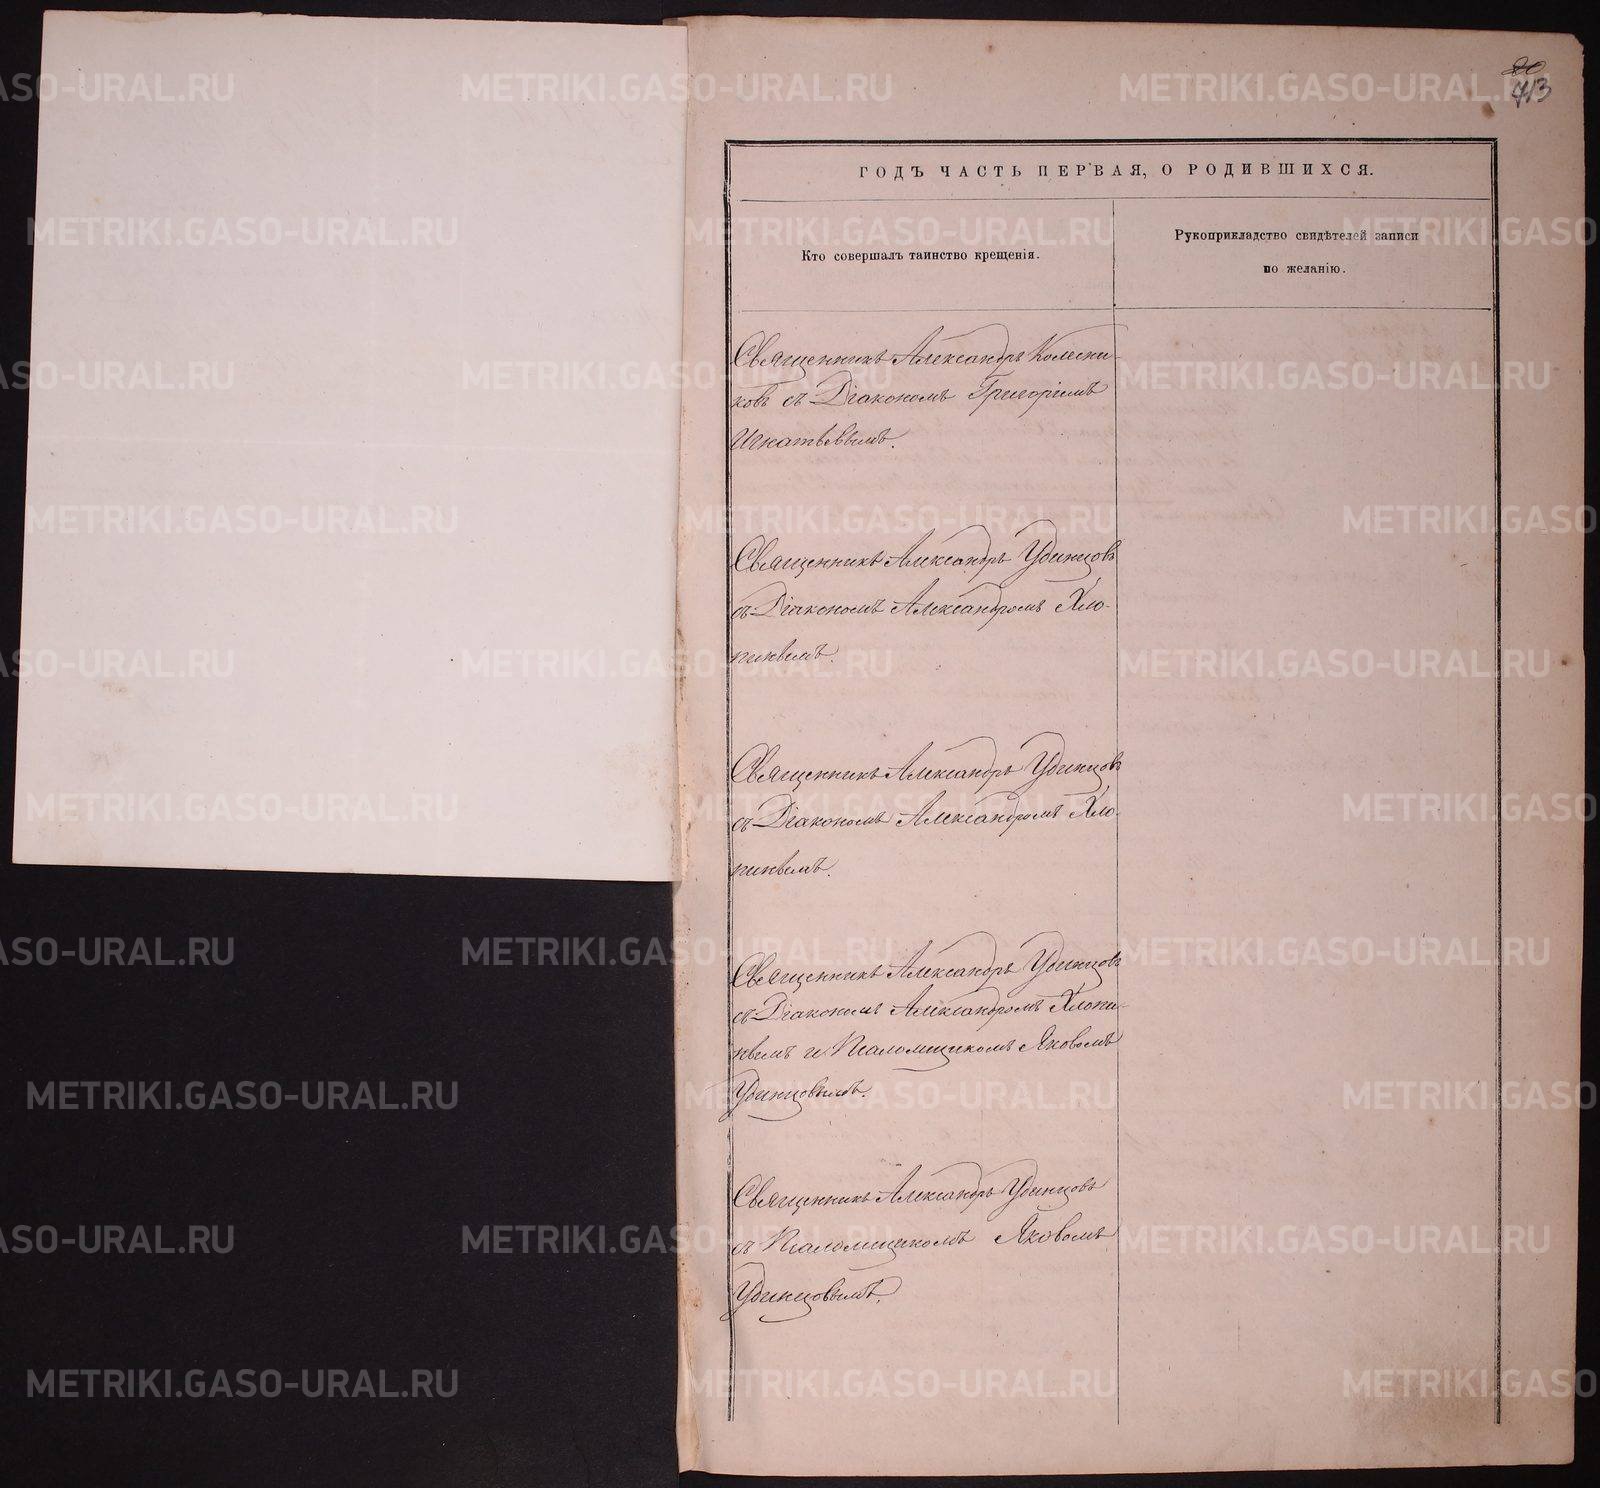 80
413
ГОДЪ ЧАСТЬ ПЕРВАЯ, О РОДИВШИХСЯ.
Кто совершалъ таинство крещенія.
Рукоприкладство свидѣтелей записи
по желанію.
Священникъ Александръ Колесни-
ковъ съ Діакономъ Григоріемъ
Игнатьевымъ.
Священникъ Александръ Удинцовъ
съ Діакономъ Александромъ Хло-
пинымъ.
Священникъ Александръ Удинцовъ
съ Діакономъ Александромъ Хло-
пинымъ.
Священникъ Александръ Удинцовъ
съ Діакономъ Александромъ Хлопи-
нымъ и Псаломщикомъ Яковомъ
Удинцовымъ.
Священникъ Александръ Удинцовъ
съ Псаломщикомъ Яковомъ
Удинцовымъ.
METRIKI.GASO-URAL.RU